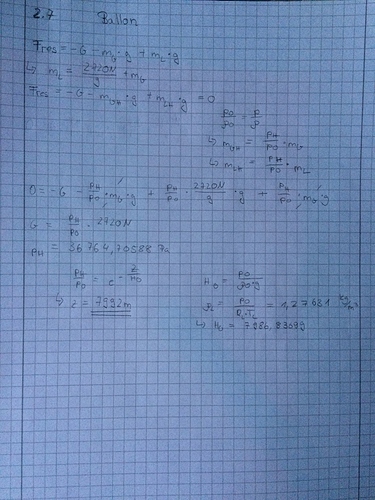 2.7 Ballon
Fres = -G - m_G · g + m_L · g
↳ m_L = 2720N/g + m_G
Fres = -G - m_GH · g + m_LH · g = 0
p0/ρ0 = p/ρ
↳ m_GH = pH/p0 · m_G
↳ m_LH = pH/p0 · m_L
0 = -G - pH/p0 · m_G · g + pH/p0 · 2720N/g · g + pH/p0 · m_G · g
G = pH/p0 · 2720N
pH = 36764,70588 Pa
pH/p0 = e^(-z/H0)
H0 = p0/(ρ0·g)
↳ z = 7992m
= 1,27631 kg/m³
↳ H0 = 7986,8369